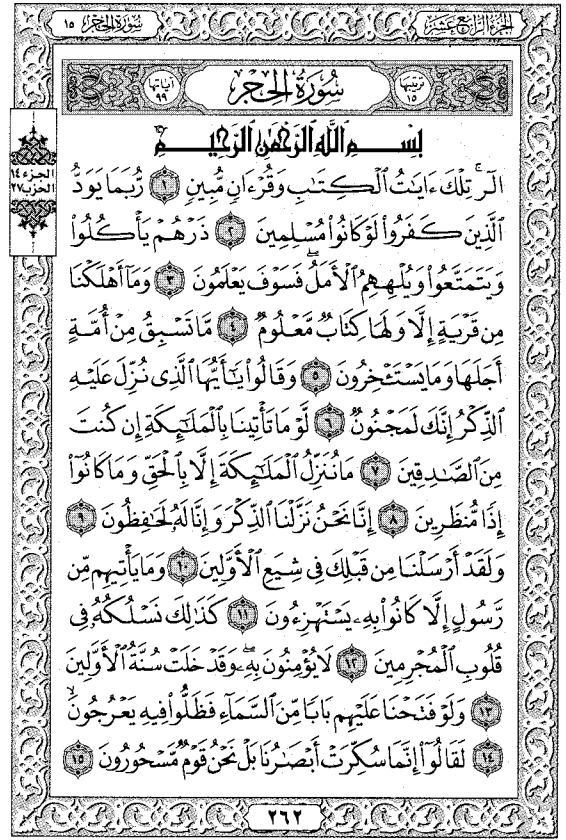 الجزء الرابع عشر
سورة الحجر ١٥
ترتيبها ١٥
سُورَةُ الحِجْرِ
آياتها ٩٩
الجزء ١٤
الحزب ٢٧
بِسْمِ ٱللَّهِ ٱلرَّحْمَٰنِ ٱلرَّحِيمِ
الٓرۚ تِلْكَ ءَايَٰتُ ٱلْكِتَٰبِ وَقُرْءَانٍ مُّبِينٍ ١ رُّبَمَا يَوَدُّ
ٱلَّذِينَ كَفَرُوا۟ لَوْ كَانُوا۟ مُسْلِمِينَ ٢ ذَرْهُمْ يَأْكُلُوا۟
وَيَتَمَتَّعُوا۟ وَيُلْهِهِمُ ٱلْأَمَلُۖ فَسَوْفَ يَعْلَمُونَ ٣ وَمَآ أَهْلَكْنَا
مِن قَرْيَةٍ إِلَّا وَلَهَا كِتَابٌ مَّعْلُومٌ ٤ مَّا تَسْبِقُ مِنْ أُمَّةٍ
أَجَلَهَا وَمَا يَسْتَـْٔخِرُونَ ٥ وَقَالُوا۟ يَٰٓأَيُّهَا ٱلَّذِى نُزِّلَ عَلَيْهِ
ٱلذِّكْرُ إِنَّكَ لَمَجْنُونٌ ٦ لَّوْ مَا تَأْتِينَا بِٱلْمَلَٰٓئِكَةِ إِن كُنتَ
مِنَ ٱلصَّٰدِقِينَ ٧ مَا نُنَزِّلُ ٱلْمَلَٰٓئِكَةَ إِلَّا بِٱلْحَقِّ وَمَا كَانُوٓا۟
إِذًا مُّنظَرِينَ ٨ إِنَّا نَحْنُ نَزَّلْنَا ٱلذِّكْرَ وَإِنَّا لَهُۥ لَحَٰفِظُونَ ٩
وَلَقَدْ أَرْسَلْنَا مِن قَبْلِكَ فِى شِيَعِ ٱلْأَوَّلِينَ ١٠ وَمَا يَأْتِيهِم مِّن
رَّسُولٍ إِلَّا كَانُوا۟ بِهِۦ يَسْتَهْزِءُونَ ١١ كَذَٰلِكَ نَسْلُكُهُۥ فِى
قُلُوبِ ٱلْمُجْرِمِينَ ١٢ لَا يُؤْمِنُونَ بِهِۦۖ وَقَدْ خَلَتْ سُنَّةُ ٱلْأَوَّلِينَ
١٣ وَلَوْ فَتَحْنَا عَلَيْهِم بَابًا مِّنَ ٱلسَّمَآءِ فَظَلُّوا۟ فِيهِ يَعْرُجُونَۙ
١٤ لَقَالُوٓا۟ إِنَّمَا سُكِّرَتْ أَبْصَٰرُنَا بَلْ نَحْنُ قَوْمٌ مَّسْحُورُونَ ١٥
٢٦٢